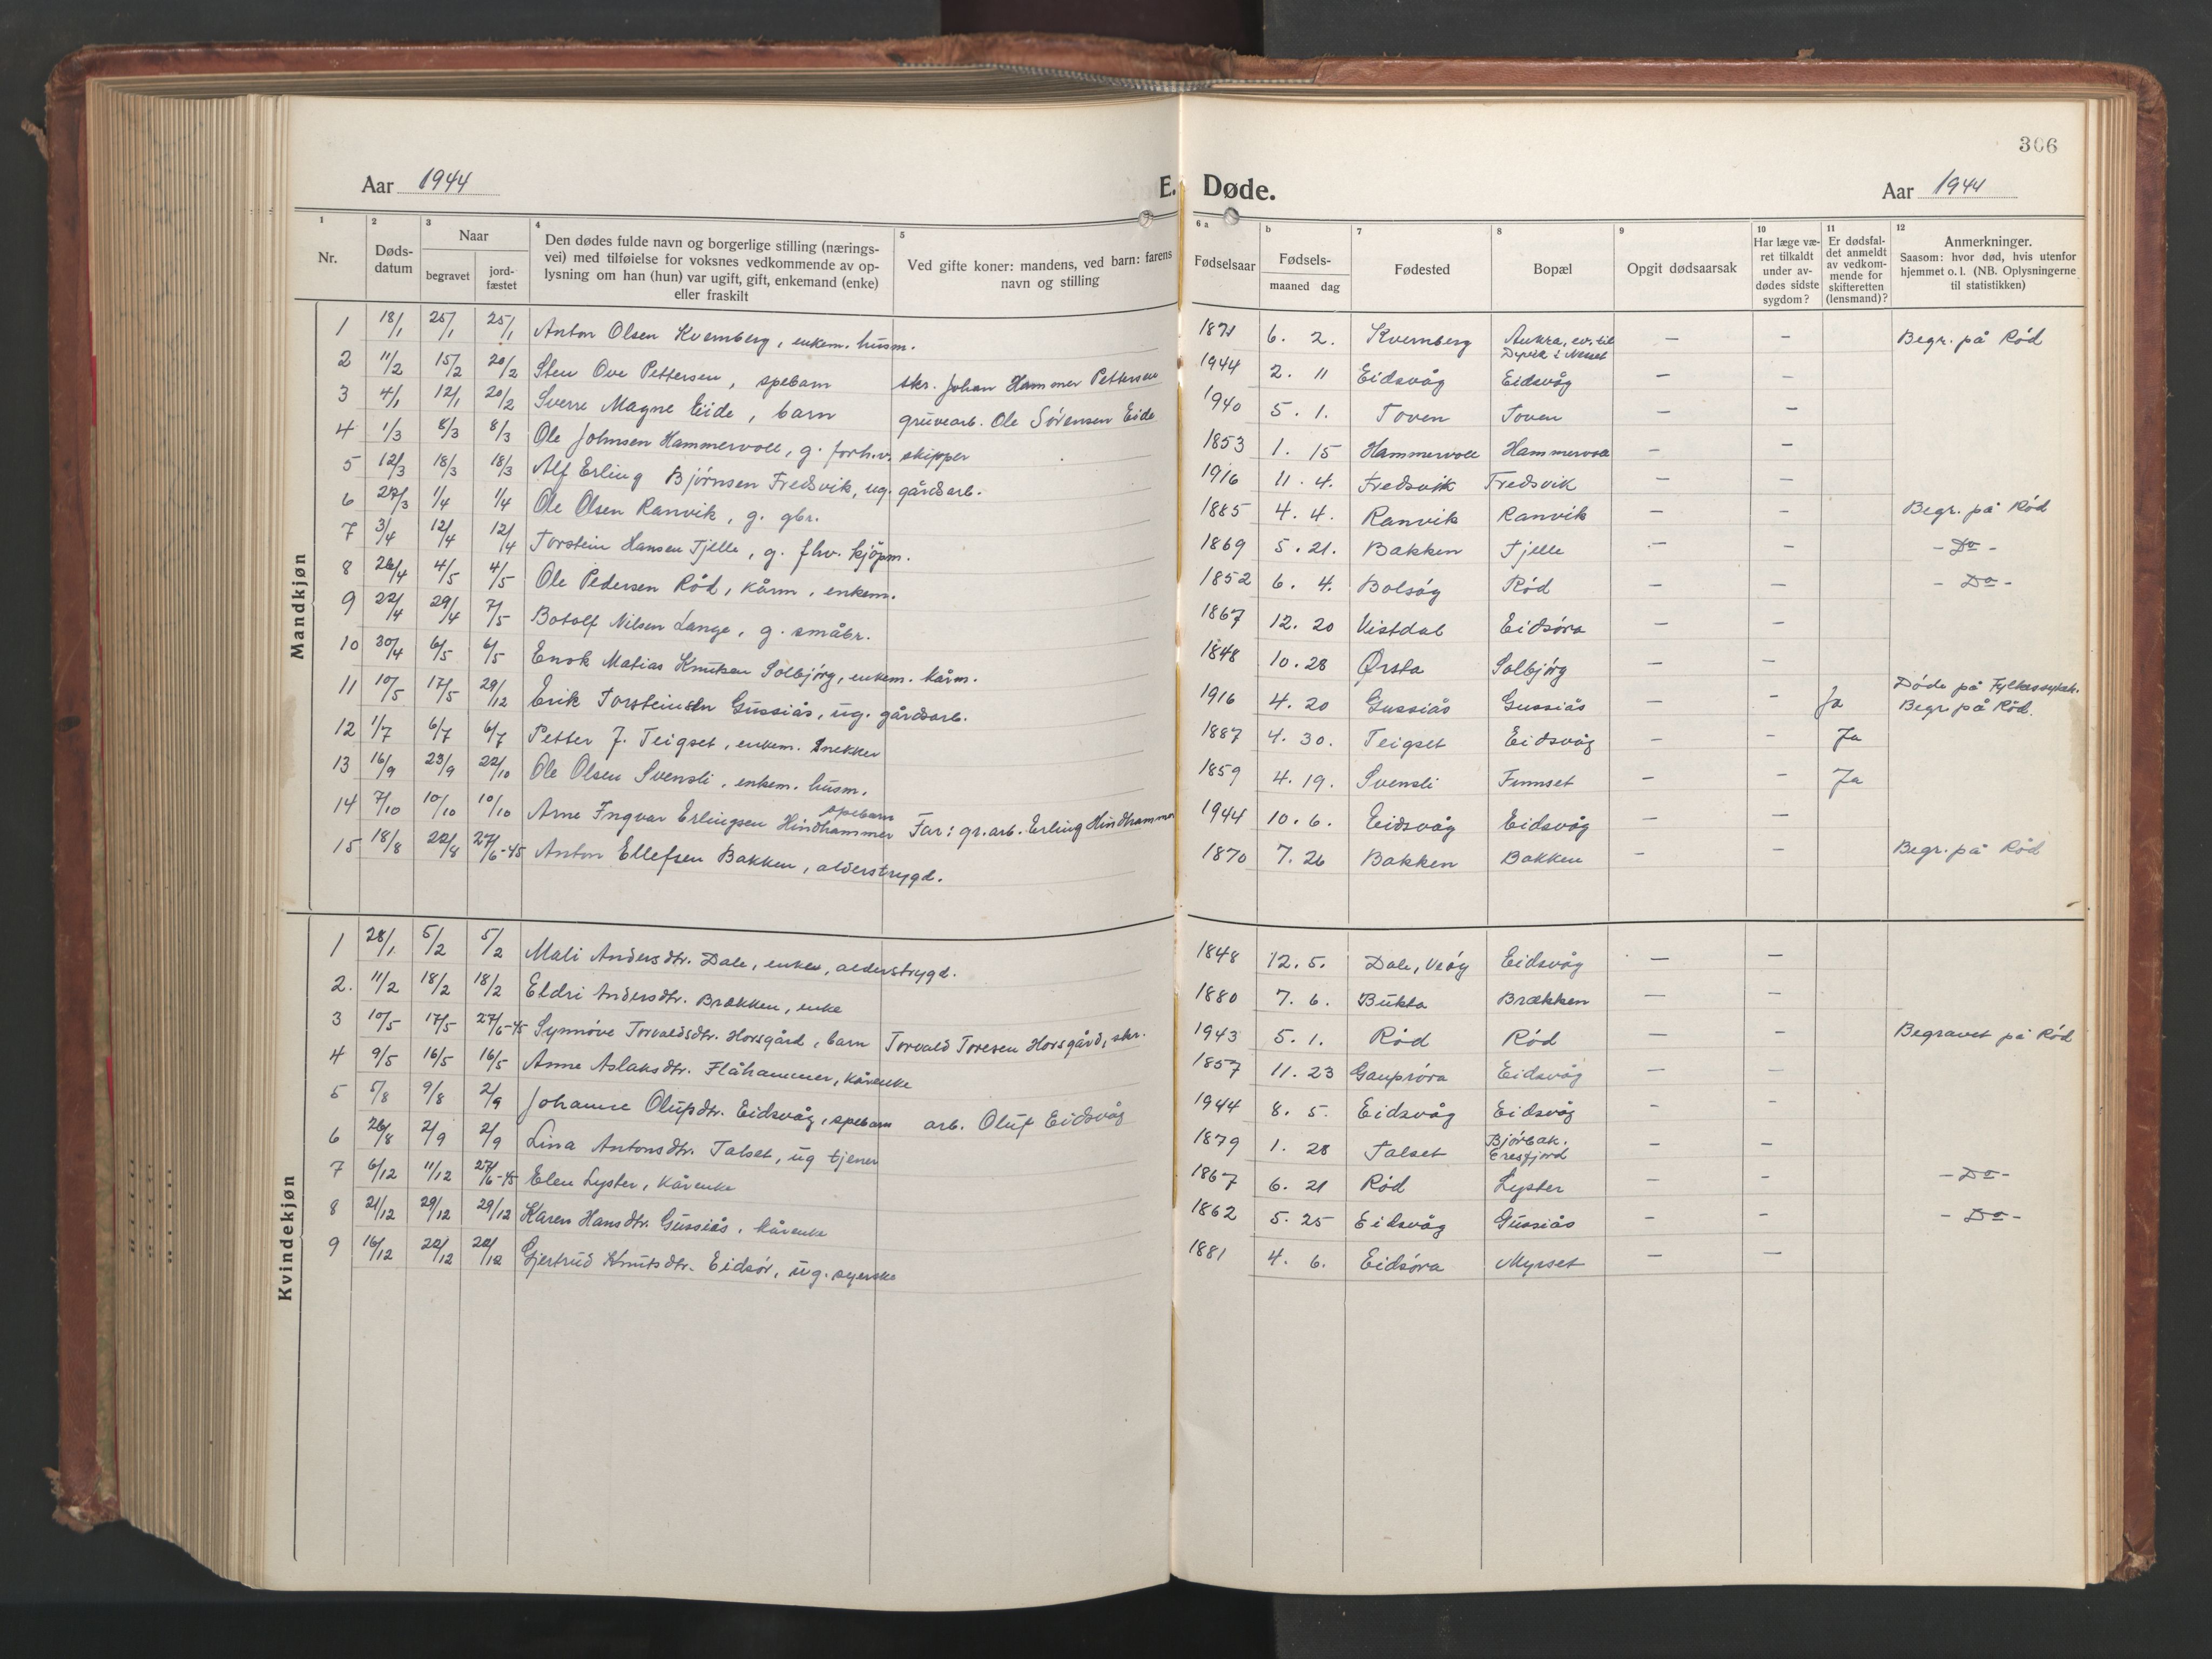 306
Aar 1944
E. Døde.
Aar 1944
1 2 3 4 5 6 a b 7 8 9 10 11 12
Nr.
Døds-
datum
Naar
begravet
jord-
fæstet
Den dødes fulde navn og borgerlige stilling (nærings-
vei) med tilføielse for voksnes vedkommende av op-
lysning om han (hun) var ugift, gift, enkemand (enke)
eller fraskilt
Ved gifte koner: mandens, ved barn: farens
navn og stilling
Fødselsaar
Fødsels-
maaned dag
Fødested
Bopæl
Opgit dødsaarsak
Har læge væ-
ret tilkaldt
under av-
dødes sidste
sygdom?
Er dødsfal-
det anmeldt
av vedkom-
mende for
skifteretten
(lensmand)?
Anmerkninger.
Saasom: hvor død, hvis utenfor
hjemmet o. l. (NB. Oplysningerne
til statistikken)
Mandkjøn
1 18/1 25/1 25/1 Anton Olsen Kvernberg, enkem. husm. 1871 6. 2. Kvernberg Aukra, ev. til Dyvik i Nesset — — Begr. på Rød
2 11/2 15/2 20/2 Sten Ove Pettersen, spebarn skr. Johan Hammer Pettersen 1944 2. 11 Eidsvåg Eidsvåg — —
3 4/1 12/1 20/2 Sverre Magne Eide, barn gruvearb. Ole Sørensen Eide 1940 5. 1. Toven Toven — —
4 1/3 8/3 8/3 Ole Johnsen Hammervoll, g. forhv. skipper 1853 1. 15 Hammervoll Hammervoll — —
5 12/3 18/3 18/3 Alf Erling Bjørnsen Fredsvik, ug. gårdsarb. 1916 11. 4. Fredsvik Fredsvik — —
6 27/3 1/4 1/4 Ole Olsen Ranvik, g. gbr. 1885 4. 4. Ranvik Ranvik — — Begr. på Rød
7 3/4 12/4 12/4 Torstein Hansen Tjelle, g. fhv. kjøpm. 1869 5. 21. Bakken Tjelle — — - Do -
8 26/4 4/5 4/5 Ole Pedersen Rød, kårm, enkem. 1852 6. 4. Bolsøy Rød — — - Do -
9 22/4 29/4 7/5 Botolf Nilsen Lange, g. småbr. 1867 12. 20 Vistdal Eidsøra — —
10 30/4 6/5 6/5 Enok Matias Knutsen Solbjørg, enkem. kårm. 1848 10. 28 Ørsta Solbjørg — —
11 10/5 17/5 29/12 Erik Torsteinsen Gussiås, ug. gårdsarb. 1916 4. 20 Gussiås Gussiås — Ja Døde på Fylkessykeh. Begr. på Rød.
12 1/7 6/7 6/7 Petter J. Teigset, enkem. Snekker 1887 4. 30. Teigset Eidsvåg — — Ja
13 16/9 23/9 22/10 Ole Olsen Svensli, enkem. husm. 1859 4. 19. Svensli Finnset — — Ja
14 7/10 10/10 10/10 Arne Ingvar Erlingsen Hindhammer spebarn Far: gr.arb. Erling Hindhammer 1944 10. 6. Eidsvåg Eidsvåg — —
15 18/8 22/8 27/6-45 Anton Ellefsen Bakken, alderstrygd. 1870 7. 26 Bakken Bakken — — Begr. på Rød
Kvindekjøn
1 28/1 5/2 5/2 Mali Andersdtr. Dale, enke, alderstrygd. 1848 12. 5. Dale, Veøy Eidsvåg — —
2. 11/2 18/2 18/2 Eldri Andersdtr. Brækken, enke 1880 7. 6. Bukta Brækken — —
3 10/5 17/5 27/6-45 Synnøve Torvaldsdtr. Horsgård, barn Torvald Toresen Horsgård, skr. 1943 5. 1. Rød Rød — — Begravet på Rød
4 9/5 16/5 16/5 Anne Aslaksdtr. Flåhammer, kårenke 1857 11. 23 Gauprøra Eidsvåg — —
5 5/8 9/8 2/9 Johanne Olufsdtr. Eidsvåg, spebarn arb. Oluf Eidsvåg 1944 8. 5. Eidsvåg Eidsvåg — —
6 26/8 2/9 2/9 Lina Antonsdtr. Talset, ug tjener 1879 1. 28 Talset Bjørbak. Eresfjord — —
7 6/12 11/12 27/6-45 Elen Lyster, kårenke 1867 6. 21 Rød Lyster — — - Do -
8 21/12 29/12 29/12 Karen Hansdtr. Gussiås, kårenke 1862 5. 25 Eidsvåg Gussiås — — - Do -
9 16/12 22/12 22/12 Gjertrud Knutsdtr. Eidsør, ug. syerske 1881 4. 6. Eidsøra Myrset — —